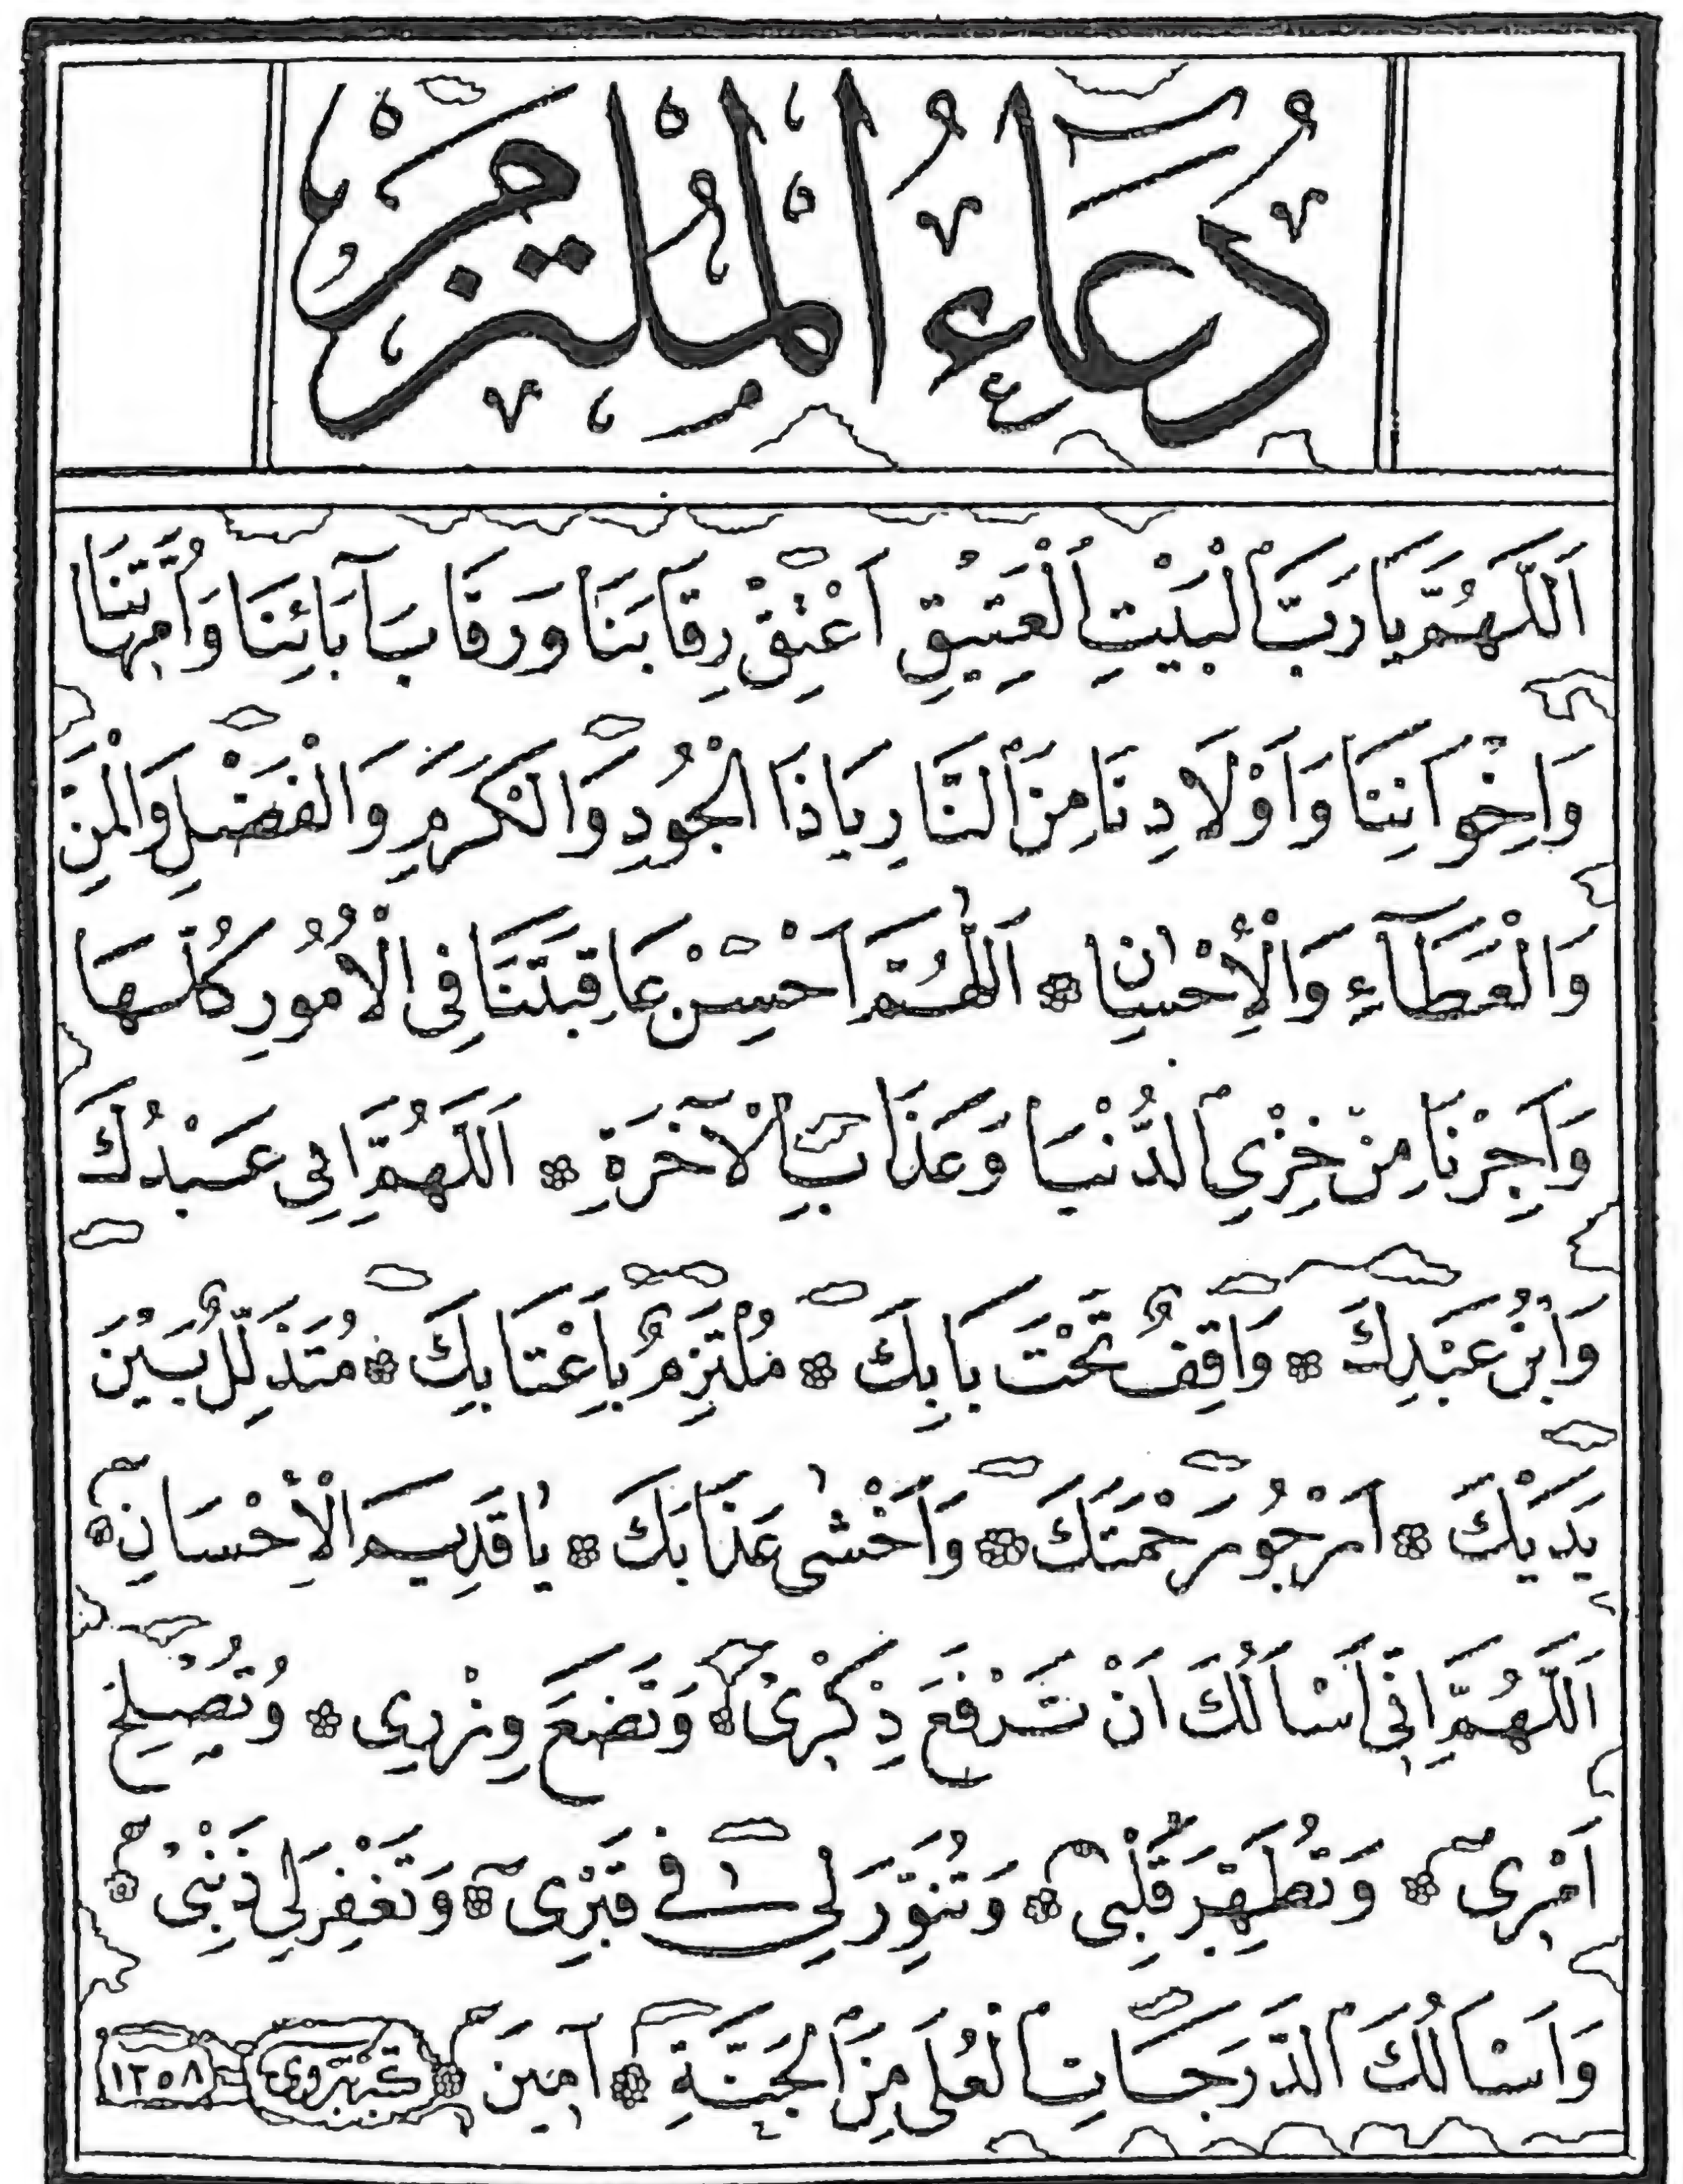 دُعَاءُ الْمُلْتَزَمْ
اَللّٰهُمَّ يَا رَبَّ الْبَيْتِ الْعَتِيْقِ اَعْتِقْ رِقَابَنَا وَرِقَابَ آبَائِنَا وَاُمَّهَاتِنَا
وَاِخْوَانِنَا وَاَوْلَادِنَا مِنَ النَّارِ يَا ذَا الْجُودِ وَالْكَرَمِ وَالْفَضْلِ وَالْمَنِّ
وَالْعَطَآءِ وَالْاِحْسَانِ ۞ اَللّٰهُمَّ اَحْسِنْ عَاقِبَتَنَا فِى الْاُمُورِ كُلِّهَا
وَاَجِرْنَا مِنْ خِزْىِ الدُّنْيَا وَعَذَابِ الْآخِرَةِ ۞ اَللّٰهُمَّ اِنِّى عَبْدُكَ
وَابْنُ عَبْدِكَ ۞ وَاقِفٌ تَحْتَ بَابِكَ ۞ مُلْتَزِمٌ بِاَعْتَابِكَ ۞ مُتَذَلِّلٌ بَيْنَ
يَدَيْكَ ۞ اَرْجُو رَحْمَتَكَ ۞ وَاَخْشٰى عَذَابَكَ ۞ يَا قَدِيمَ الْاِحْسَانِ ۞
اَللّٰهُمَّ اِنِّى اَسْاَلُكَ اَنْ تَرْفَعَ ذِكْرِىْ ۞ وَتَضَعَ وِزْرِى ۞ وَتُصْلِحَ
اَمْرِى ۞ وَتُطَهِّرَ قَلْبِى ۞ وَتُنَوِّرَ لِى فِى قَبْرِى ۞ وَتَغْفِرَ لِى ذَنْبِىْ ۞
وَاَسْاَلُكَ الدَّرَجَاتِ الْعُلَى مِنَ الْجَنَّةِ ۞ آمِينَ ۞ ١٢٥٨